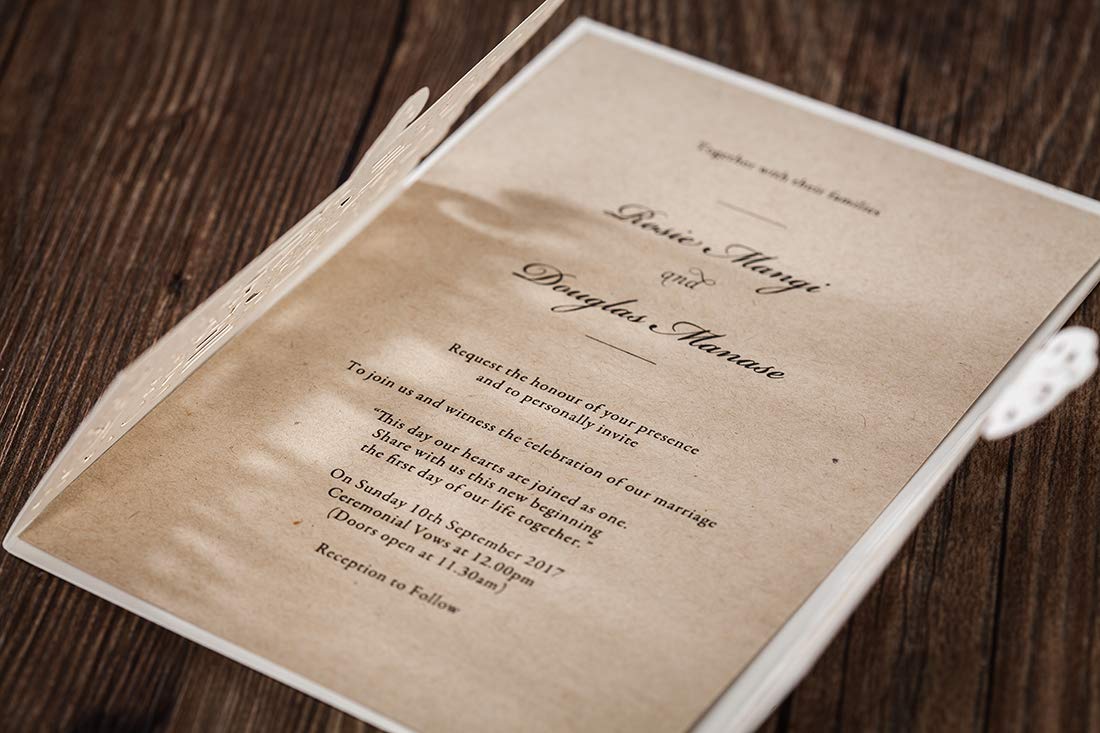 Together with their families
Rosie Mangi
and
Douglas Manase
Request the honour of your presence
and to personally invite
To join us and witness the celebration of our marriage
“This day our hearts are joined as one.
Share with us this new beginning
the first day of our life together.”
On Sunday 10th September 2017
Ceremonial Vows at 12.00pm
(Doors open at 11.30am)
Reception to Follow